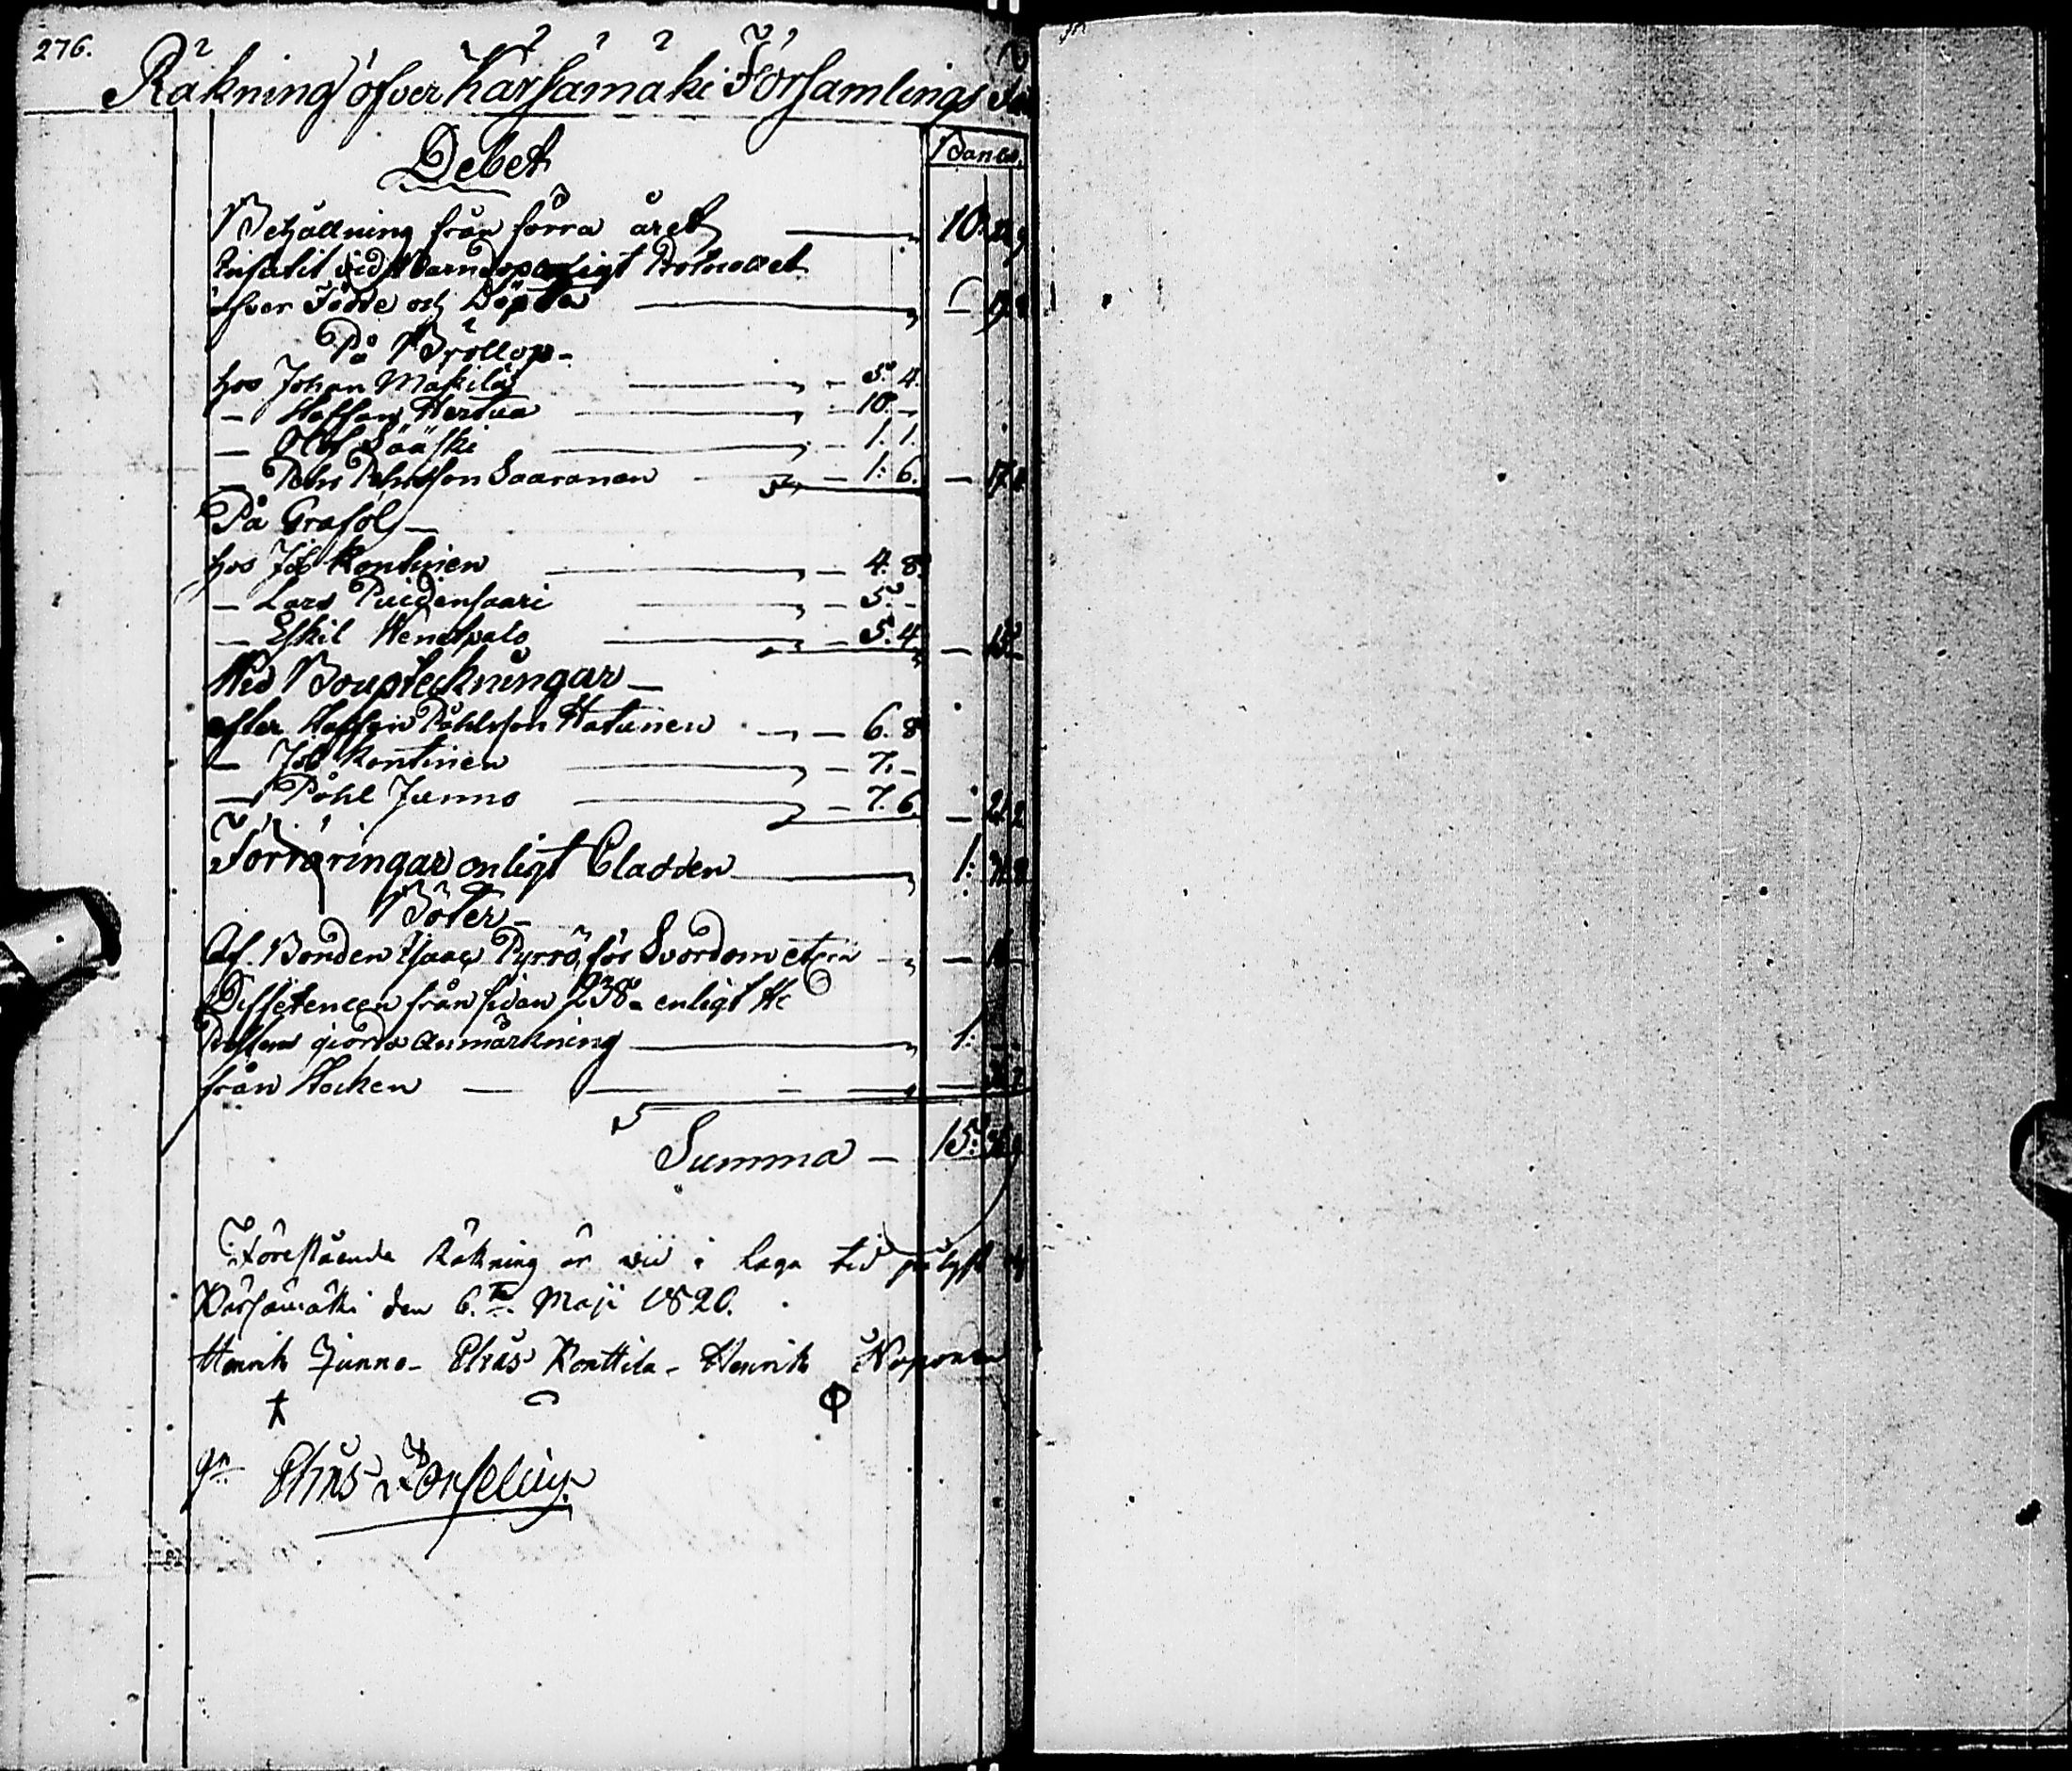 276.
Räkning öfver Kärsämäki Församlings
Debet
Banco.
Behållning från förra året 10.
vid Barndop enligt
öfver Födde och Döpta
På Bröllop
hos Johan Mäkilä 5. 4.
— Staffan Hertua 10. —
— Olof Sääski 1. 1.
— Pehr Pehrsson Saaranen 1: 6.
På Graföl —
hos Job Kontinen 4. 8.
— Lars Puidensaari 5. —
— Eskil Venetpalo 5. 4
Vid Bouptekningar —
efter Staffan Påhlsson Hatunen 6. 8
— Job Kontinen 7. —
— Påhl Junno 7. 6. — 21 2
Föräringar enligt Cladden 1:
Böter —
Af Bonden Isaac Pyrrö, för Svordom
Differencen från sidan 238 enligt
giorda anmärkning 1:
från Stocken
Summa — 15:
Förestående Räkning är vid i laga tid
Kärsämäki den 6.te Maji 1820.
Henrik Junno — Elias Konttila — Henrik Noponen
Elias